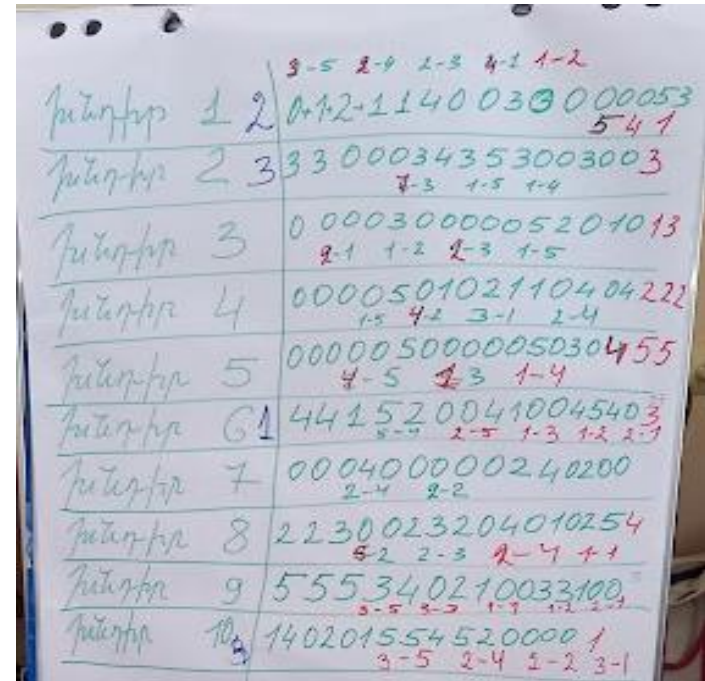 3-5 2-4 2-3 4-1 1-2
Խնդիր 1 2 0+1+2+1 1 4 0 0 3 0 0 0 0 0 5 3
5 4 1
Խնդիր 2 3 3 3 0 0 0 3 4 3 5 3 0 0 3 0 0 3
7-3 1-5 1-4
Խնդիր 3 0 0 0 0 3 0 0 0 0 0 5 2 0 1 0 1 3
2-1 1-2 2-3 1-5
Խնդիր 4 0 0 0 0 5 0 1 0 2 1 1 0 4 0 4 2 2 2
1-5 4-2 3-1 2-4
Խնդիր 5 0 0 0 0 0 5 0 0 0 0 0 5 0 3 0 4 5 5
4-5 1-3 1-4
Խնդիր 6 1 4 4 1 5 2 0 0 4 1 0 0 4 5 4 0 3
2-5 1-3 1-2 2-1
Խնդիր 7 0 0 0 4 0 0 0 0 0 2 4 0 2 0 0
2-4 2-2
Խնդիր 8 2 2 3 0 0 2 3 2 0 4 0 1 0 2 5 4
5-2 2-3 2-4 1-1
Խնդիր 9 5 5 5 3 4 0 2 1 0 0 3 3 1 0 0
3-5
Խնդիր 10 3 1 4 0 2 0 1 5 5 4 5 2 0 0 0 0 1
3-5 2-4 2-2 3-1